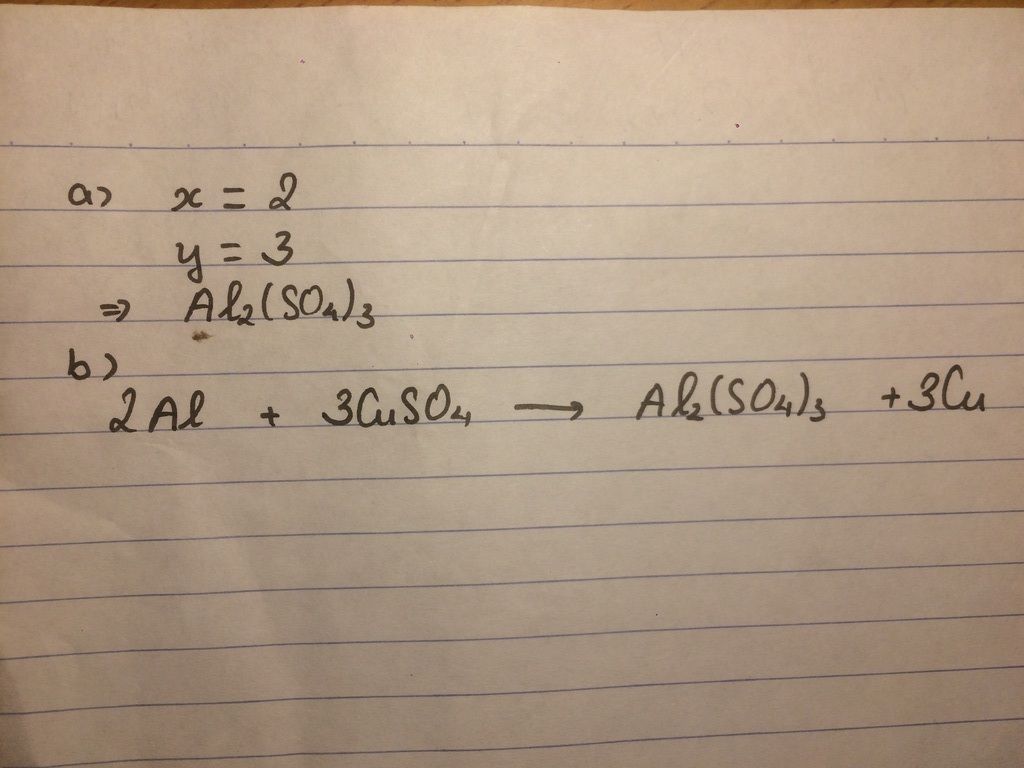 a) x = 2
y = 3
⇒ Al₂(SO₄)₃
b)
2Al + 3CuSO₄ ⟶ Al₂(SO₄)₃ + 3Cu